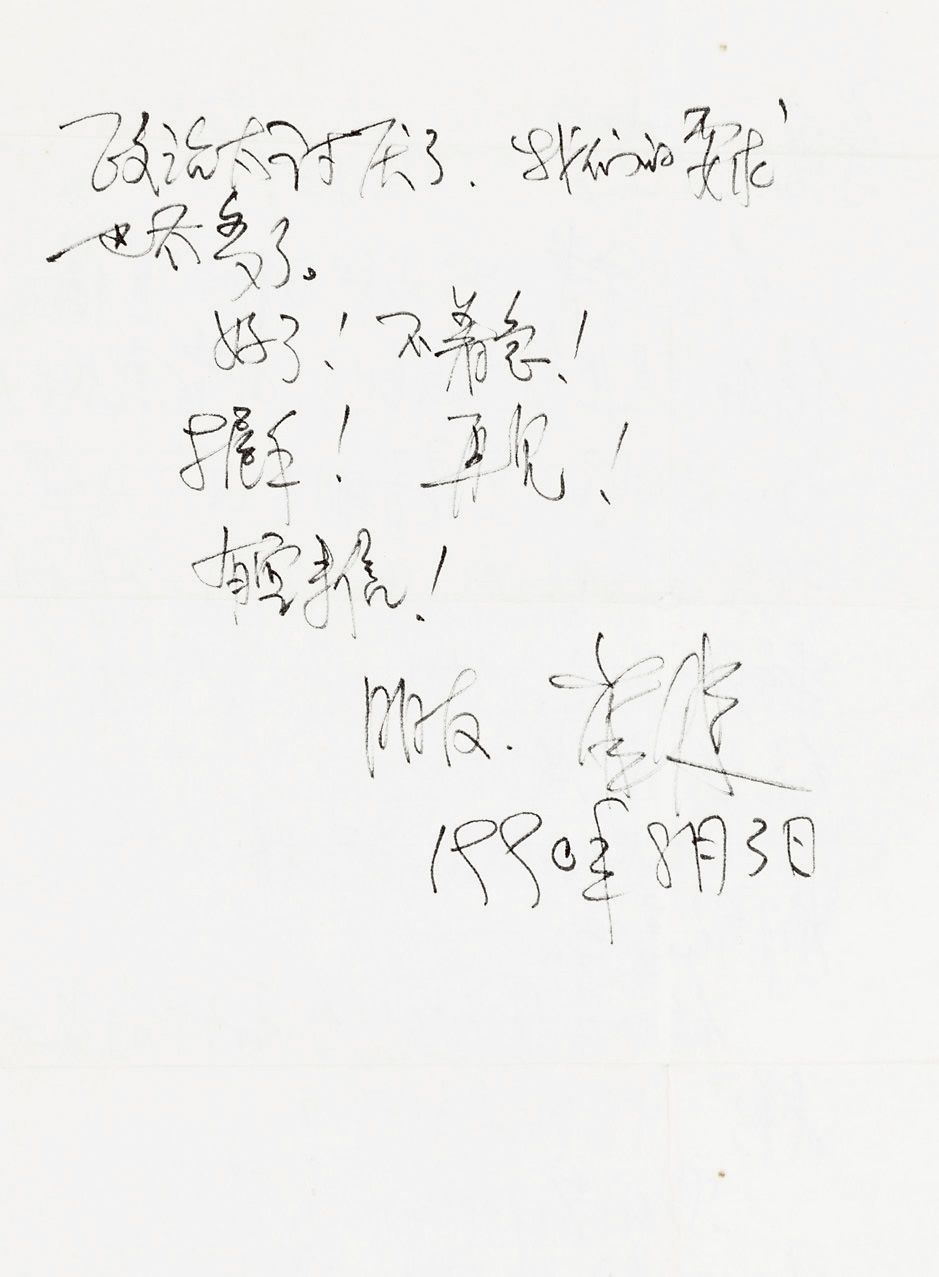 政治太讨厌了、我们的要求
也不多了。
好了！不着急！
握手！ 再见！
有空来信！
朋友.
1990年8月3日